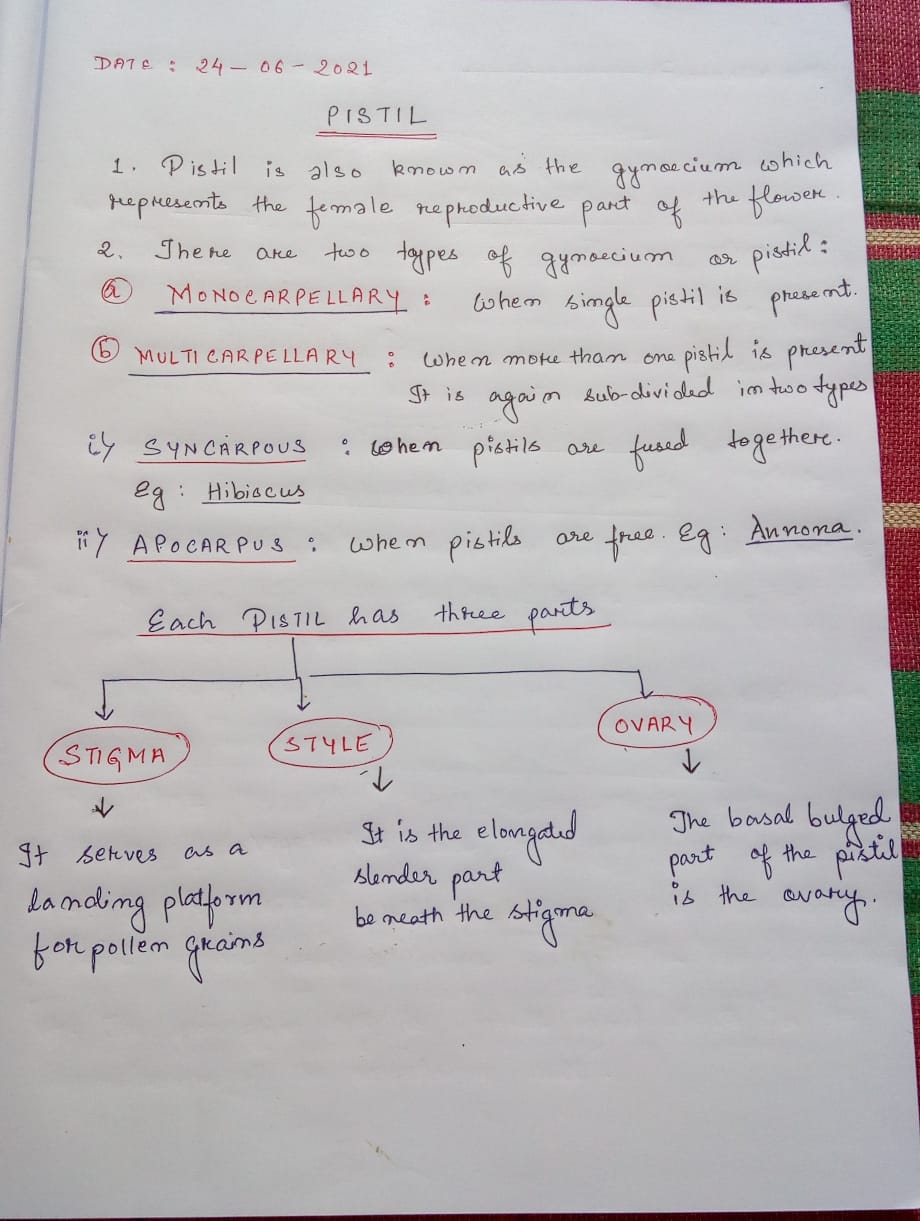 DATE : 24 - 06 - 2021
PISTIL
1. Pistil is also known as the gynoecium which
represents the female reproductive part of the flower.
2. There are two types of gynoecium or pistil :
(a) MONOCARPELLARY : When single pistil is present.
(b) MULTICARPELLARY : When more than one pistil is present
It is again sub-divided in two types
i) SYNCARPOUS : When pistils are fused togethere.
Eg : Hibiscus
ii) APOCARPUS : When pistils are free. Eg : Annona.
Each PISTIL has three parts
STIGMA STYLE OVARY
It serves as a
landing platform
for pollen grains
It is the elongated
slender part
beneath the stigma
The basal bulged
part of the pistil
is the ovary.